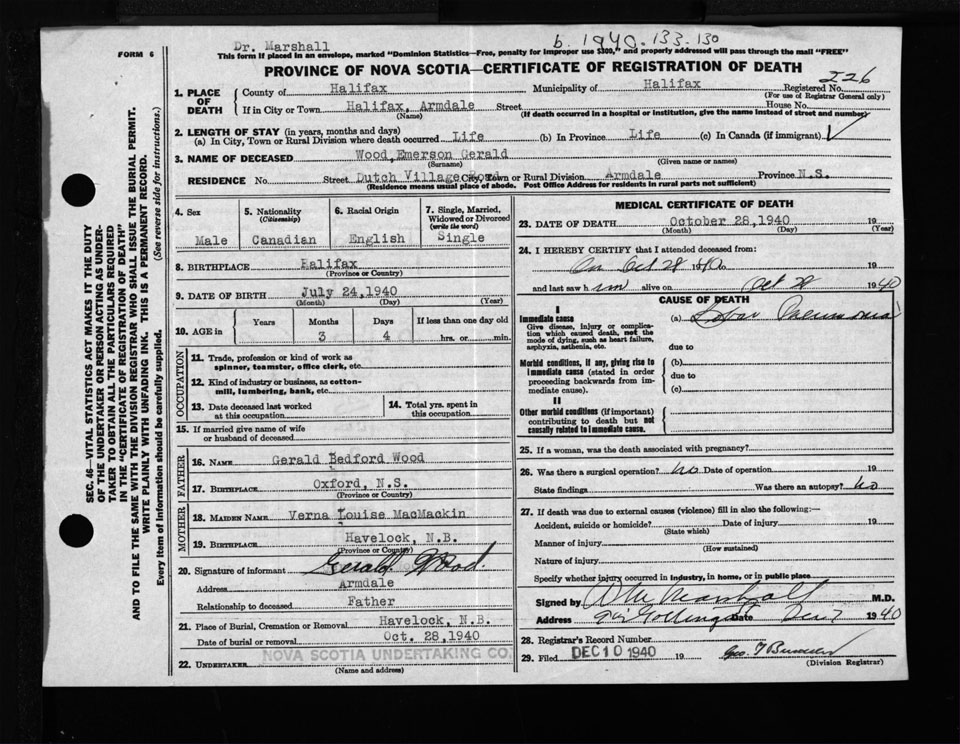 Dr. Marshall
b. 1940. 133. 130
FORM 6
This form if placed in an envelope, marked "Dominion Statistics—Free, penalty for improper use $300," and properly addressed will pass through the mail "FREE"
PROVINCE OF NOVA SCOTIA—CERTIFICATE OF REGISTRATION OF DEATH
226
1. PLACE OF DEATH
County of Halifax Municipality of Halifax Registered No.
(For use of Registrar General only)
If in City or Town Halifax, Armdale Street House No.
(Name) (If death occurred in a hospital or institution, give the name instead of street and number)
2. LENGTH OF STAY (in years, months and days)
(a) In City, Town or Rural Division where death occurred Life (b) In Province Life (c) In Canada (if immigrant)
3. NAME OF DECEASED Wood, Emerson Gerald
(Surname) (Given name or names)
RESIDENCE No. Street Dutch Village City, Town or Rural Division Armdale Province N.S.
(Residence means usual place of abode. Post Office Address for residents in rural parts not sufficient)
4. Sex
Male
5. Nationality
(Citizenship)
Canadian
6. Racial Origin
English
7. Single, Married, Widowed or Divorced
(write the word)
Single
8. BIRTHPLACE Halifax
(Province or Country)
9. DATE OF BIRTH July 24, 1940
(Month) (Day) (Year)
10. AGE in Years Months Days If less than one day old
3 4 hrs. or min.
OCCUPATION
11. Trade, profession or kind of work as
spinner, teamster, office clerk, etc.
12. Kind of industry or business, as cotton-
mill, lumbering, bank, etc.
13. Date deceased last worked
at this occupation
14. Total yrs. spent in
this occupation
15. If married give name of wife
or husband of deceased
FATHER
16. NAME Gerald Bedford Wood
17. BIRTHPLACE Oxford, N.S.
(Province or Country)
MOTHER
18. MAIDEN NAME Verna Louise MacMackin
19. BIRTHPLACE Havelock, N.B.
(Province or Country)
20. Signature of informant Gerald Wood
Address Armdale
Relationship to deceased Father
21. Place of Burial, Cremation or Removal Havelock, N.B.
Date of burial or removal Oct. 28, 1940
22. UNDERTAKER NOVA SCOTIA UNDERTAKING CO.
(Name and address)
MEDICAL CERTIFICATE OF DEATH
23. DATE OF DEATH October 28, 1940 19
(Month) (Day) (Year)
24. I HEREBY CERTIFY that I attended deceased from:
On Oct 28 1940 to 19
and last saw him alive on Oct 28 1940
CAUSE OF DEATH
I
Immediate cause
Give disease, injury or complica-
tion which caused death, not the
mode of dying, such as heart failure,
asphyxia, asthenia, etc.
(a) Lobar Pneumonia
due to
Morbid conditions, if any, giving rise to
immediate cause (stated in order
proceeding backwards from im-
mediate cause).
(b)
due to
(c)
II
Other morbid conditions (if important)
contributing to death but not
causally related to immediate cause.
25. If a woman, was the death associated with pregnancy?
26. Was there a surgical operation? no Date of operation 19
State findings Was there an autopsy? no
27. If death was due to external causes (violence) fill in also the following:—
Accident, suicide or homicide? Date of injury 19
(State which)
Manner of injury
(How sustained)
Nature of injury
Specify whether injury occurred in industry, in home, or in public place
Signed by Marshall M.D.
Address Date Dec 7 1940
28. Registrar's Record Number
29. Filed DEC 10 1940 19
(Division Registrar)
SEC. 46—VITAL STATISTICS ACT MAKES IT THE DUTY
OF THE UNDERTAKER OR PERSON ACTING AS UNDER-
TAKER TO OBTAIN ALL THE PARTICULARS REQUIRED
IN THE "CERTIFICATE OF REGISTRATION OF DEATH"
AND TO FILE THE SAME WITH THE DIVISION REGISTRAR WHO SHALL ISSUE THE BURIAL PERMIT.
WRITE PLAINLY WITH UNFADING INK. THIS IS A PERMANENT RECORD.
Every item of information should be carefully supplied. (See reverse side for instructions.)